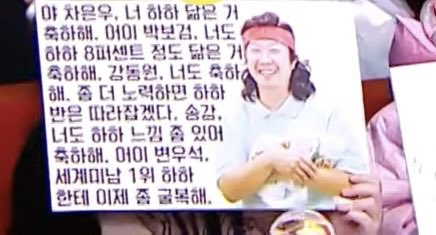 야 차은우, 너 하하 닮은 거
축하해. 어이 박보검, 너도
하하 8퍼센트 정도 닮은 거
축하해. 강동원, 너도 축하
해. 좀 더 노력하면 하하
반은 따라잡겠다. 송강,
너도 하하 느낌 좀 있어
축하해. 어이 변우석,
세계미남 1위 하하
한테 이제 좀 굴복해.